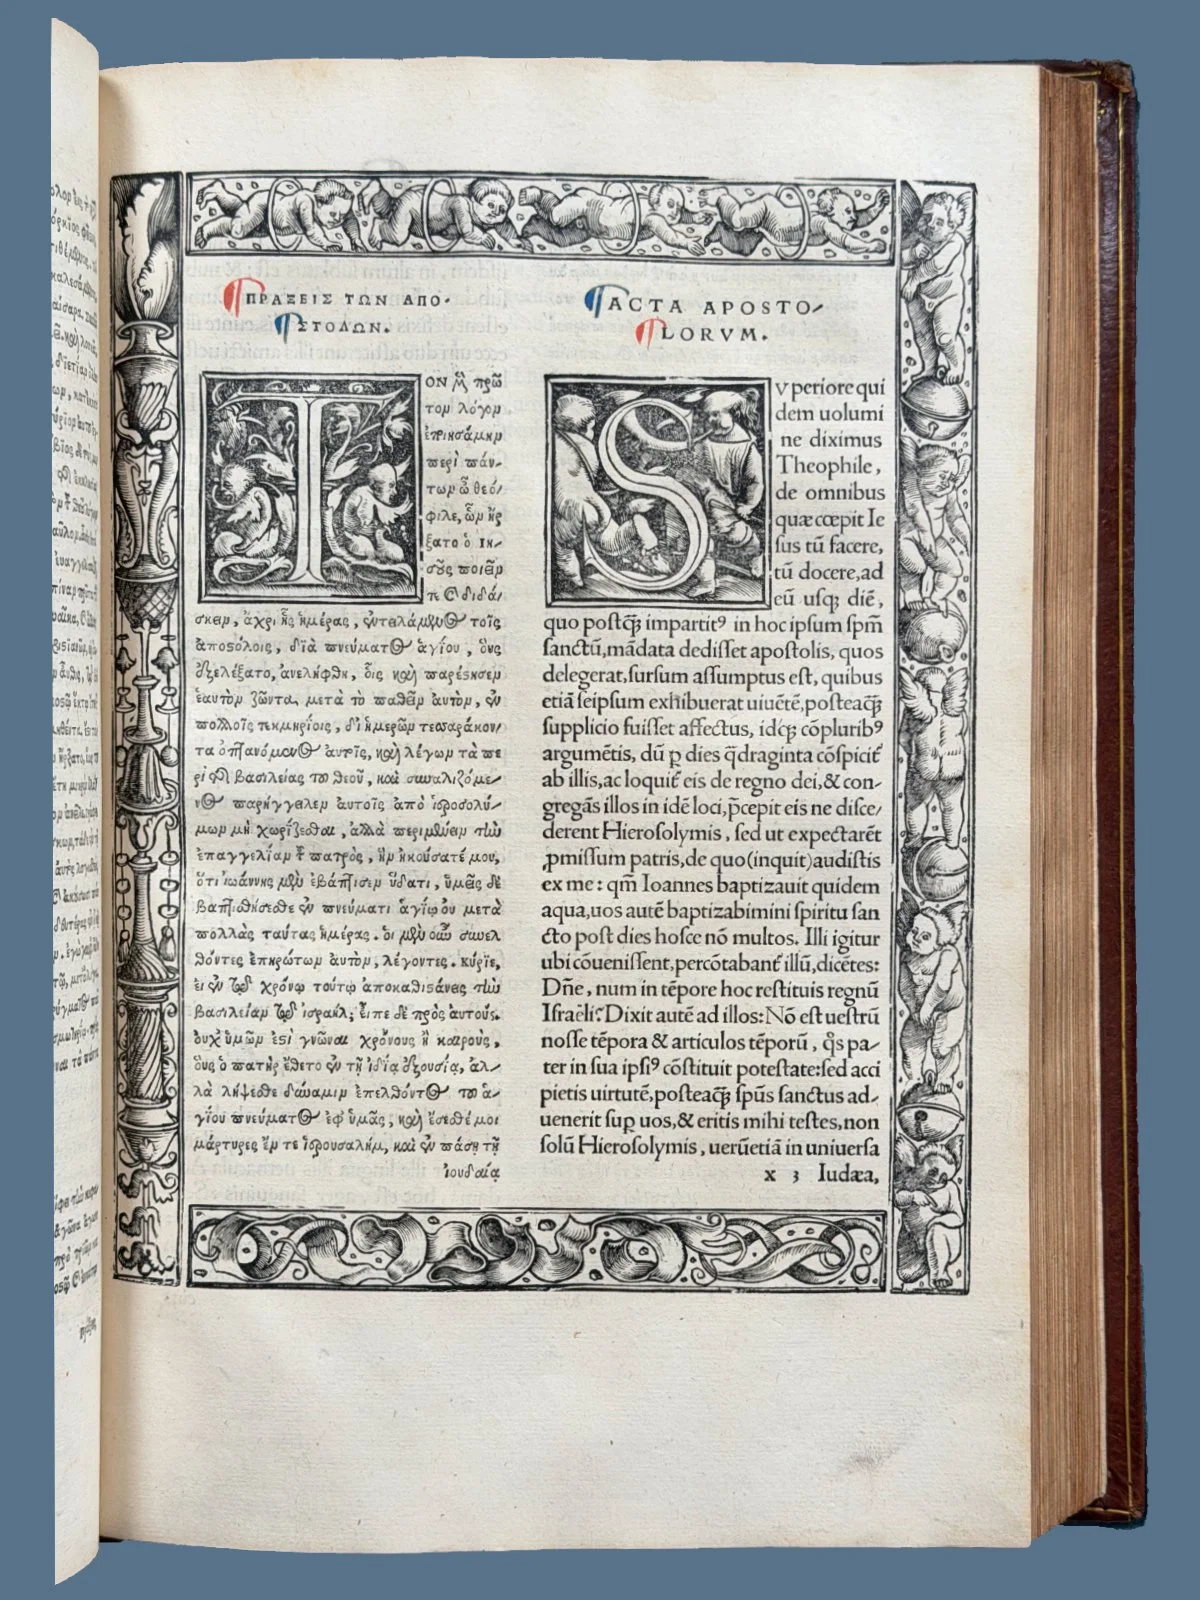 ΠΡΑΞΕΙΣ ΤΩΝ ΑΠΟ-
ΣΤΟΛΩΝ.
ΤΟΝ μὲν πρῶ
τον λόγον
ἐποιησάμην
περὶ πάν-
των ὦ θεό-
φιλε, ὧν ἤρ
ξατο ὁ ιη-
σοῦς ποιεῖν
τε καὶ διδά-
σκειν, ἄχρι ἧς ἡμέρας, ἐντειλάμενος τοῖς
ἀποστόλοις, διὰ πνεύματος ἁγίου, οὓς
ἐξελέξατο, ἀνελήφθη, οἷς καὶ παρέστησεν
ἑαυτὸν ζῶντα, μετὰ τὸ παθεῖν αὐτὸν, ἐν
πολλοῖς τεκμηρίοις, δι' ἡμερῶν τεσσαράκον-
τα ὀπτανόμενος αὐτοῖς, καὶ λέγων τὰ πε
ρὶ τῆς βασιλείας τοῦ θεοῦ, καὶ συναλιζόμε-
νος παρήγγειλεν αὐτοῖς ἀπὸ ἱεροσολύ-
μων μὴ χωρίζεσθαι, ἀλλὰ περιμένειν τὴν
ἐπαγγελίαν τοῦ πατρὸς, ἣν ἠκούσατέ μου,
ὅτι ἰωάννης μὲν ἐβάπτισεν ὕδατι, ὑμεῖς δὲ
βαπτισθήσεσθε ἐν πνεύματι ἁγίῳ οὐ μετὰ
πολλὰς ταύτας ἡμέρας. οἱ μὲν οὖν συνελ
θόντες ἐπηρώτων αὐτὸν, λέγοντες. κύριε,
εἰ ἐν τῷ χρόνῳ τούτῳ ἀποκαθιστάνεις τὴν
βασιλείαν τῷ ἰσραήλ; εἶπε δὲ πρὸς αὐτούς.
οὐχ ὑμῶν ἐστὶ γνῶναι χρόνους ἢ καιροὺς,
οὓς ὁ πατὴρ ἔθετο ἐν τῇ ἰδίᾳ ἐξουσίᾳ, ἀλ-
λὰ λήψεσθε δύναμιν ἐπελθόντος τοῦ ἁ-
γίου πνεύματος ἐφ' ὑμᾶς, καὶ ἔσεσθέ μοι
μάρτυρες ἔν τε ἱερουσαλὴμ, καὶ ἐν πάσῃ τῇ
ἰουδαίᾳ
ACTA APOSTO-
LORVM.
SVperiore qui
dem uolumi
ne diximus
Theophile,
de omnibus
quæ cœpit Ie
ſus tū facere,
tū docere, ad
eū uſq; diē,
quo poſtq̃; impartitꝰ in hoc ipſum ſpm̄
ſanctū, mādata dediſſet apoſtolis, quos
delegerat, ſurſum aſſumptus eſt, quibus
etiā ſeipſum exhibuerat uiuētē, poſteaq̃;
ſupplicio fuiſſet affectus, idq; cōpluribꝰ
argumētis, dū p̱ dies q̄draginta cōſpicit̃
ab illis, ac loquit̃ eis de regno dei, & con
gregās illos in idē loci, p̄cepit eis ne diſce-
derent Hieroſolymis, ſed ut expectarēt
ꝓmiſſum patris, de quo (inquit) audiſtis
ex me: qm̄ Ioannes baptizauit quidem
aqua, uos autē baptizabimini ſpiritu ſan
cto poſt dies hoſce nō multos. Illi igitur
ubi cōueniſſent, percōtabant̃ illū, dicētes:
Dñe, num in tēpore hoc reſtituis regnū
Iſraëli? Dixit autē ad illos: Nō eſt ueſtrū
noſſe tēpora & articulos tēporū, q̊s pa-
ter in ſua ipſiꝰ cōſtituit poteſtate: ſed acci
pietis uirtutē, poſteaq̃; ſpūs ſanctus ad-
uenerit ſup̱ uos, & eritis mihi teſtes, non
ſolū Hieroſolymis, uerūetiā in uniuerſa
x 3 Iudæa,